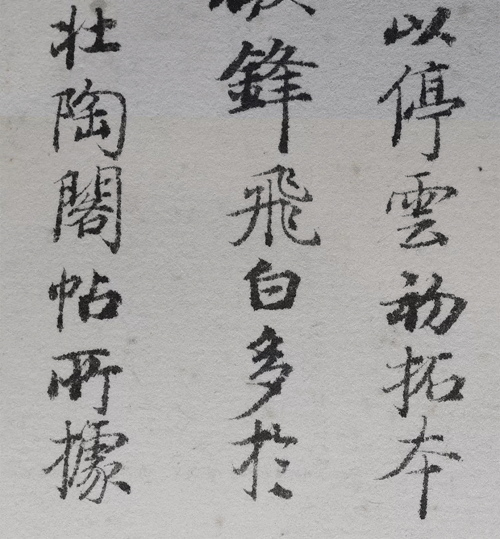 以停雲初拓本
鋒飛白多於
壯陶閣帖所據